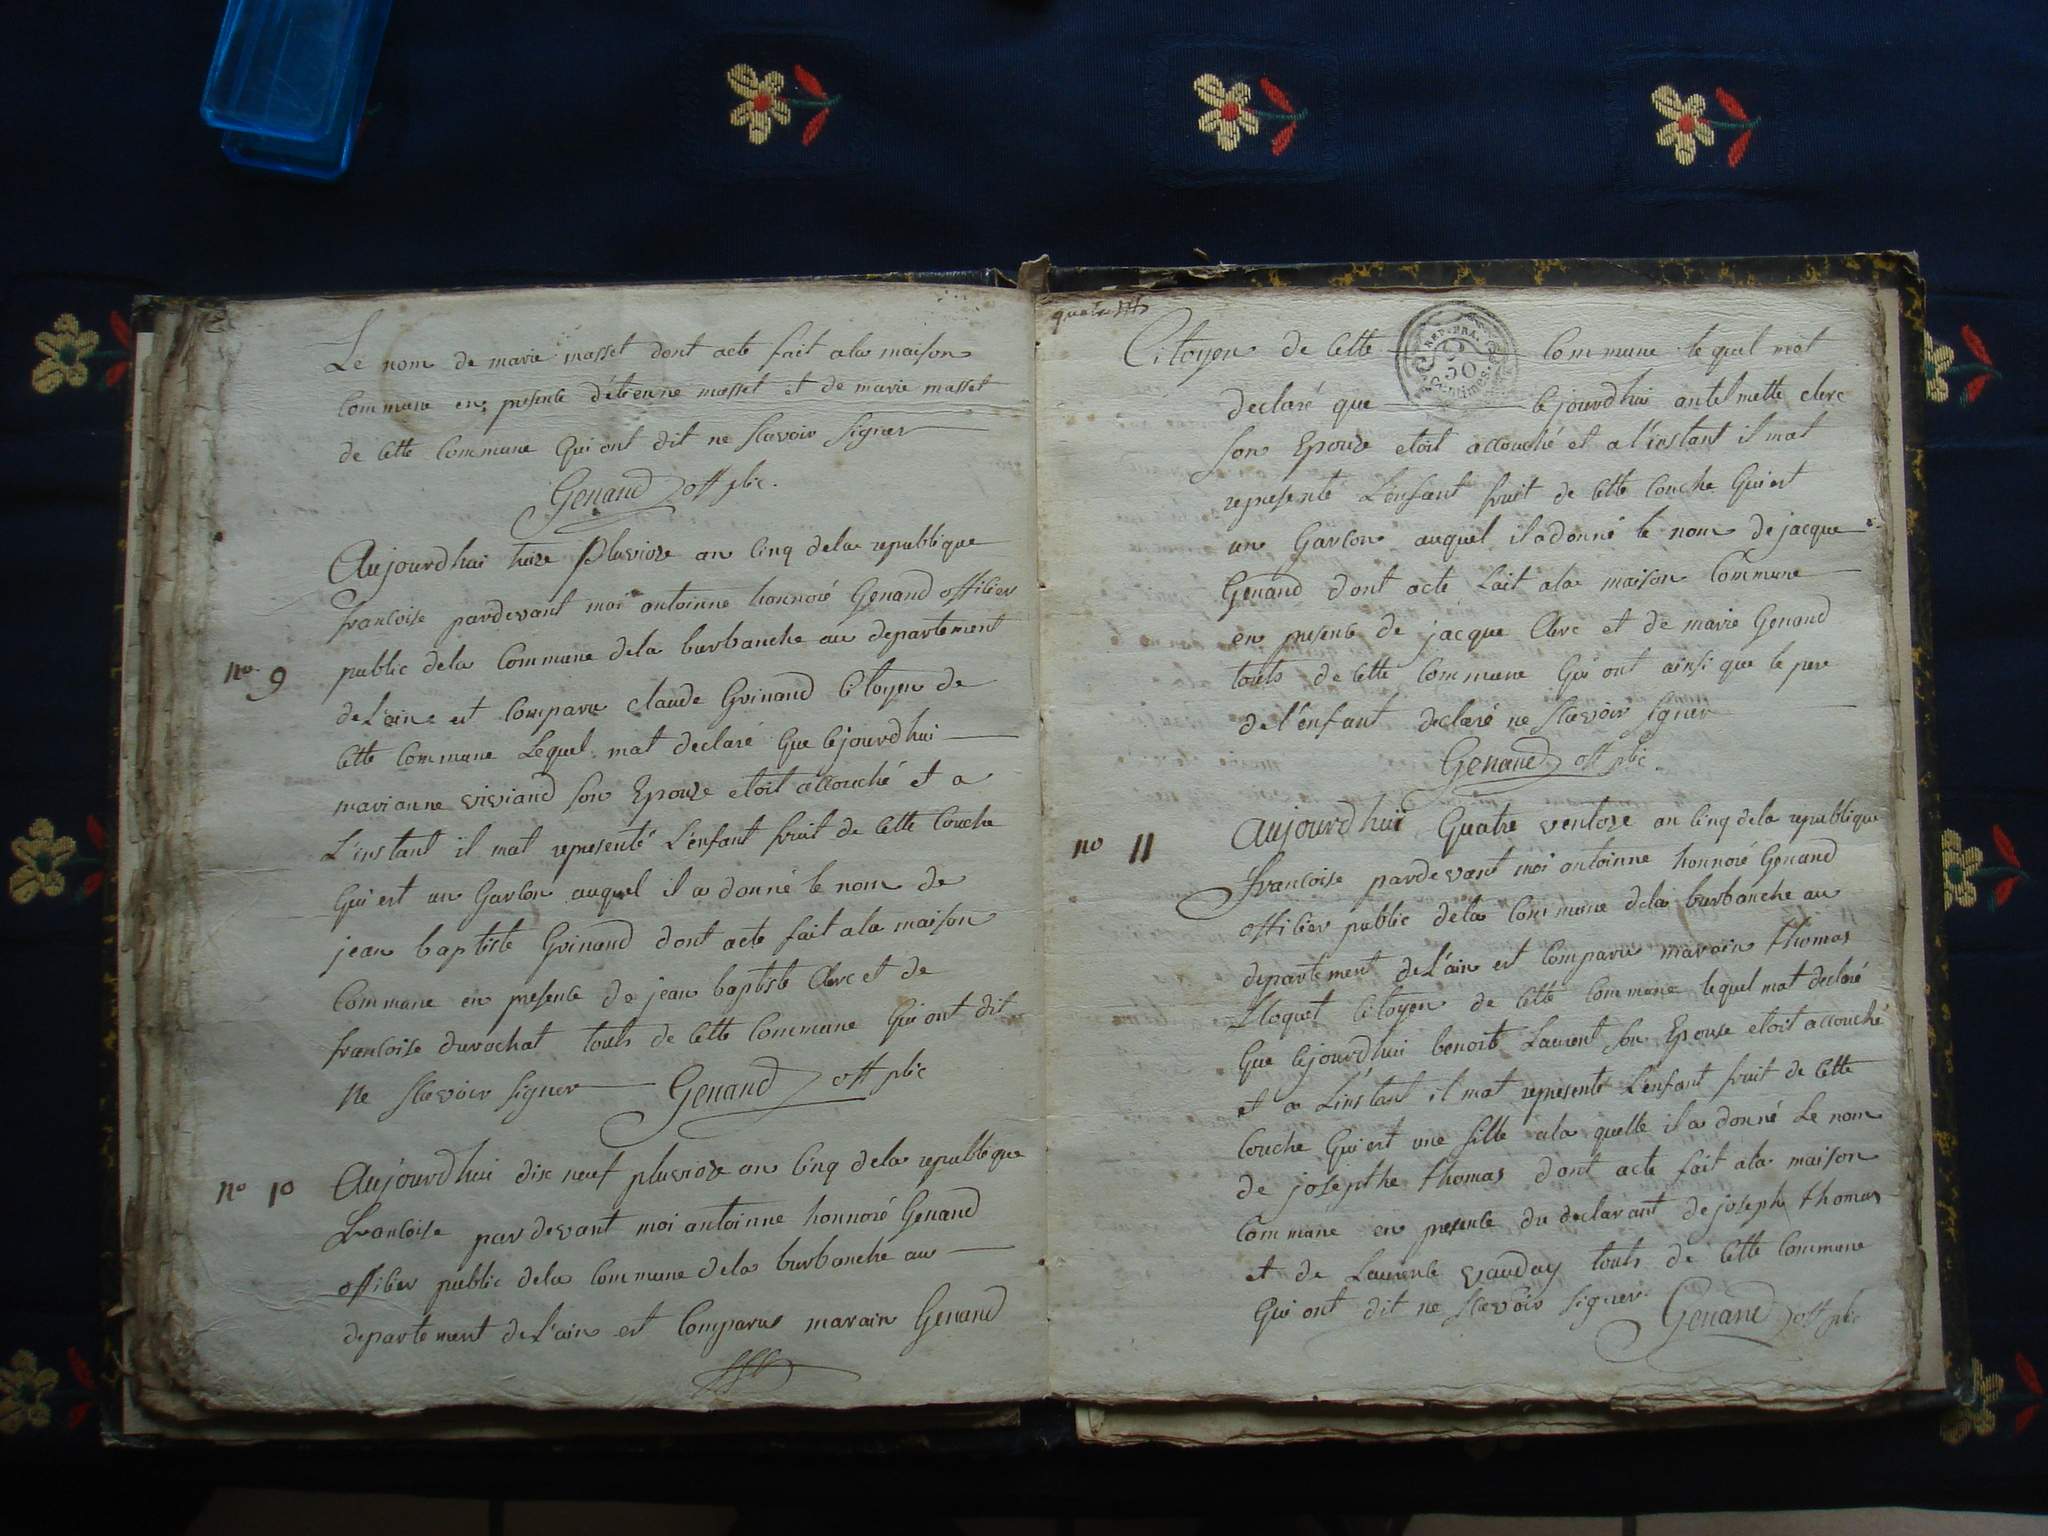 Le nom de marie masset dont acte fait ala maison
Commune en presence d'étienne masset et de marie masset
de Cette Commune Qui ont dit ne scavoir signer
Genand off plic.
no. 9
Aujourdhui treze Pluvioze an Cinq dela republique
francoise pardevant moi antoinne honnoré Genand officier
public dela Commune dela burbanche au departement
de L'ain est Comparu claude Guinand Citoyen de
Cette Commune Lequel mat declaré Que Cejourdhui
marianne viviand son Epouze etoit accouché et a
L'instant il mat representé L'enfant fruit de Cette Couche
Qui est un Garcon auquel il a donné le nom de
jean baptiste Guinand dont acte fait ala maison
Commune en presence de jean baptiste Clerc et de
francoise durochat touts de Cette Commune Qui ont dit
ne scavoir signer Genand off plic
no 10
Aujourdhui dix neuf pluvioze an Cinq dela republique
francoise pardevant moi antoinne honnoré Genand
officier public dela Commune dela burbanche au
departement de L'ain est Comparus marain Genand
quatre
Citoyen de Cette Commune lequel mat
REP. FRA.
50
Centimes.
declaré que Cejourdhui antelmette clerc
son Epouze etoit accouché et a l'instant il mat
representé L'enfant fruit de Cette Couche Qui est
un Garcon auquel il a donné le nom de jacque
Genand dont acte fait ala maison Commune
en presence de jacque Clerc et de marie Genand
touts de Cette Commune Qui ont ainsi que le pere
de l'enfant declaré ne scavoir signer
Genand off plic.
no 11
aujourdhui Quatre ventoze an Cinq dela republique
francoise pardevant moi antoinne honnoré Genand
officier public dela Commune dela burbanche au
departement de L'ain est Comparu marain thomas
Citoyen de Cette Commune lequel mat declaré
Que Cejourdhui benoite Laurent son Epouse etoit accouché
et a L'instant il mat representé L'enfant fruit de Cette
Couche Qui est une fille ala quelle il a donné Le nom
de josepthe thomas dont acte fait ala maison
Commune en presence du declarant de joseph thomas
et de Laurence vauday touts de Cette Commune
Qui ont dit ne scavoir signer. Genand off plic